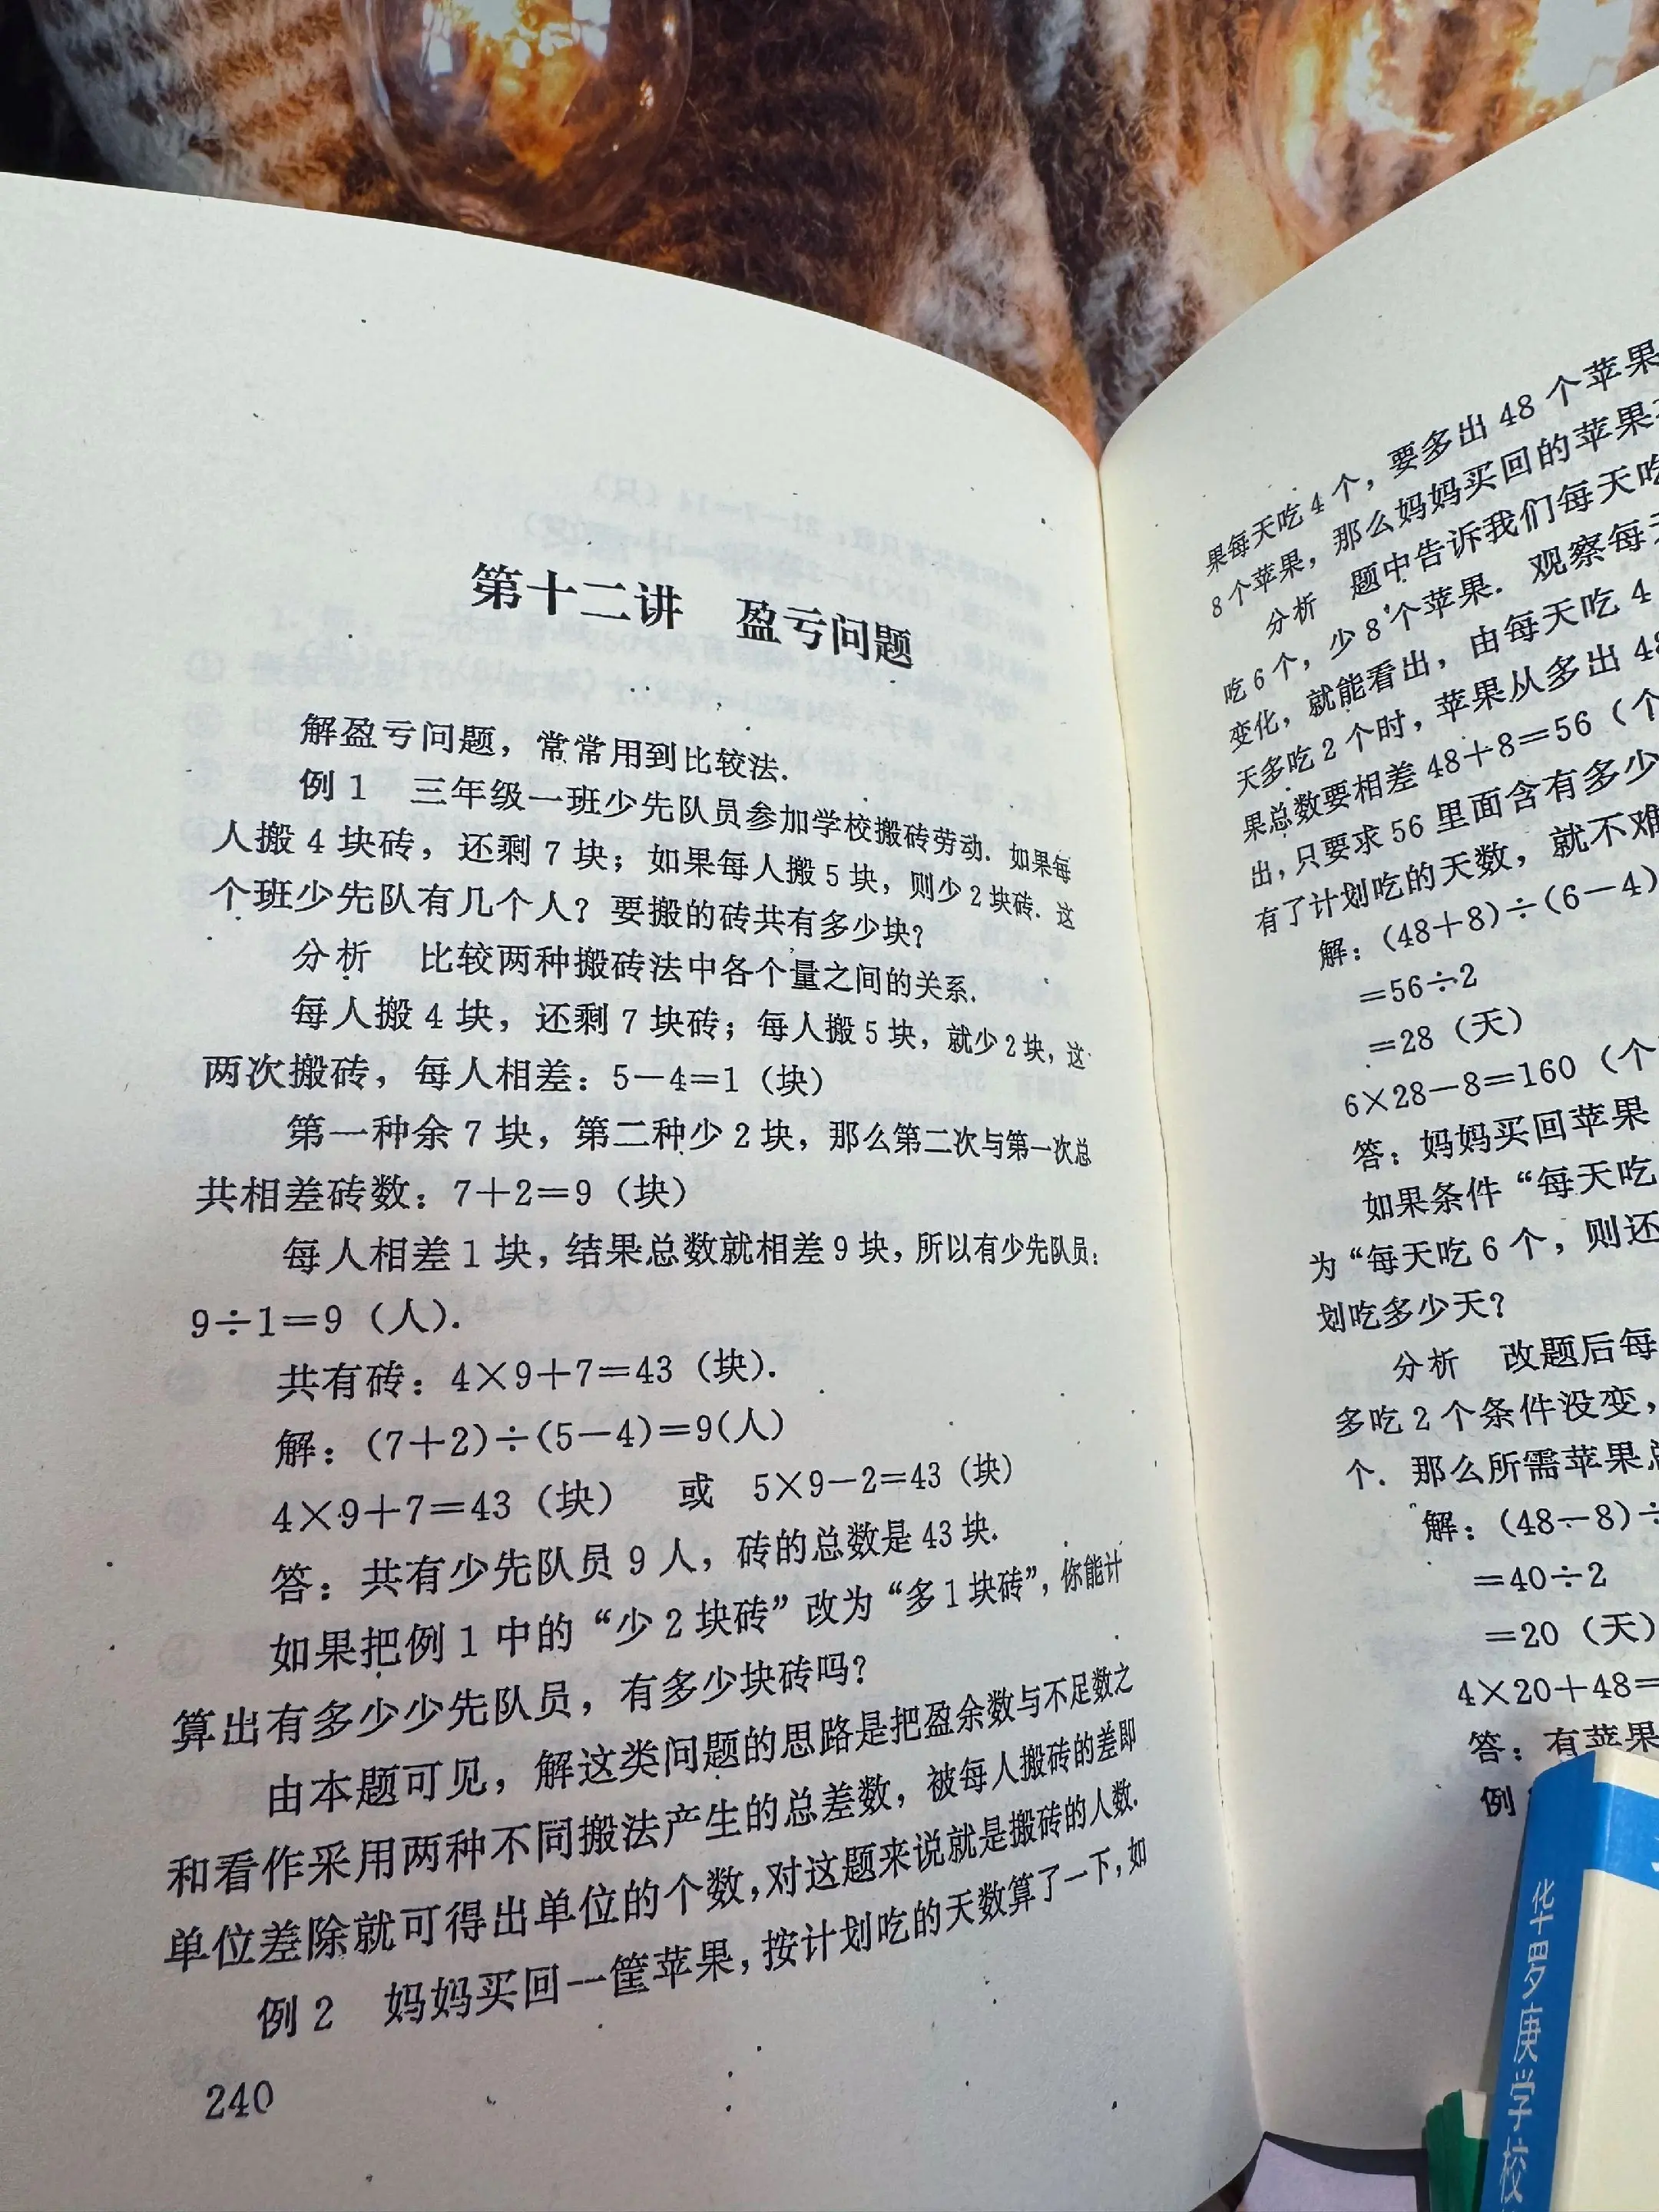 第十二讲 盈亏问题
解盈亏问题，常常用到比较法.
例1 三年级一班少先队员参加学校搬砖劳动. 如果每
人搬4块砖，还剩7块；如果每人搬5块，则少2块砖. 这
个班少先队有几个人？要搬的砖共有多少块？
分析 比较两种搬砖法中各个量之间的关系.
每人搬4块，还剩7块砖；每人搬5块，就少2块，这
两次搬砖，每人相差：5－4＝1（块）
第一种余7块，第二种少2块，那么第二次与第一次总
共相差砖数：7＋2＝9（块）
每人相差1块，结果总数就相差9块，所以有少先队员：
9÷1＝9（人）.
共有砖：4×9＋7＝43（块）.
解：(7＋2)÷(5－4)＝9(人)
4×9＋7＝43（块） 或 5×9－2＝43（块）
答：共有少先队员9人，砖的总数是43块.
如果把例1中的“少2块砖”改为“多1块砖”，你能计
算出有多少少先队员，有多少块砖吗？
由本题可见，解这类问题的思路是把盈余数与不足数之
和看作采用两种不同搬法产生的总差数，被每人搬砖的差即
单位差除就可得出单位的个数，对这题来说就是搬砖的人数.
例2 妈妈买回一筐苹果，按计划吃的天数算了一下，如
240
果每天吃4个，要多出48个苹果
8个苹果，那么妈妈买回的苹果
分析 题中告诉我们每天吃
吃6个，少8个苹果. 观察每
变化，就能看出，由每天吃4
天多吃2个时，苹果从多出48
果总数要相差48＋8＝56（个
出，只要求56里面含有多少
有了计划吃的天数，就不难
解：(48＋8)÷(6－4)
＝56÷2
＝28（天）
6×28－8＝160（个
答：妈妈买回苹果
如果条件“每天吃
为“每天吃6个，则还
划吃多少天？
分析 改题后每
多吃2个条件没变，
个. 那么所需苹果总
解：(48－8)÷
＝40÷2
＝20（天）
4×20＋48＝
答：有苹果
例
华罗庚学校